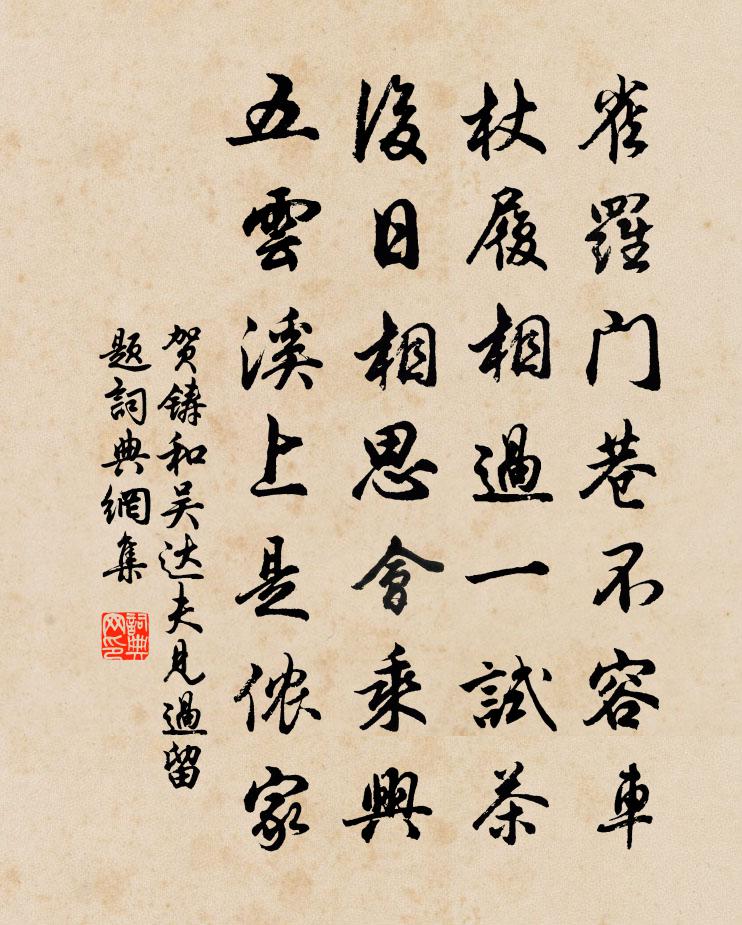 雀羅门巷不容車
杖履相過一試茶
後日相思會乘興
五雲溪上是侬家
贺鑄和吴达夫見過留
题詞典網集
詞典网印